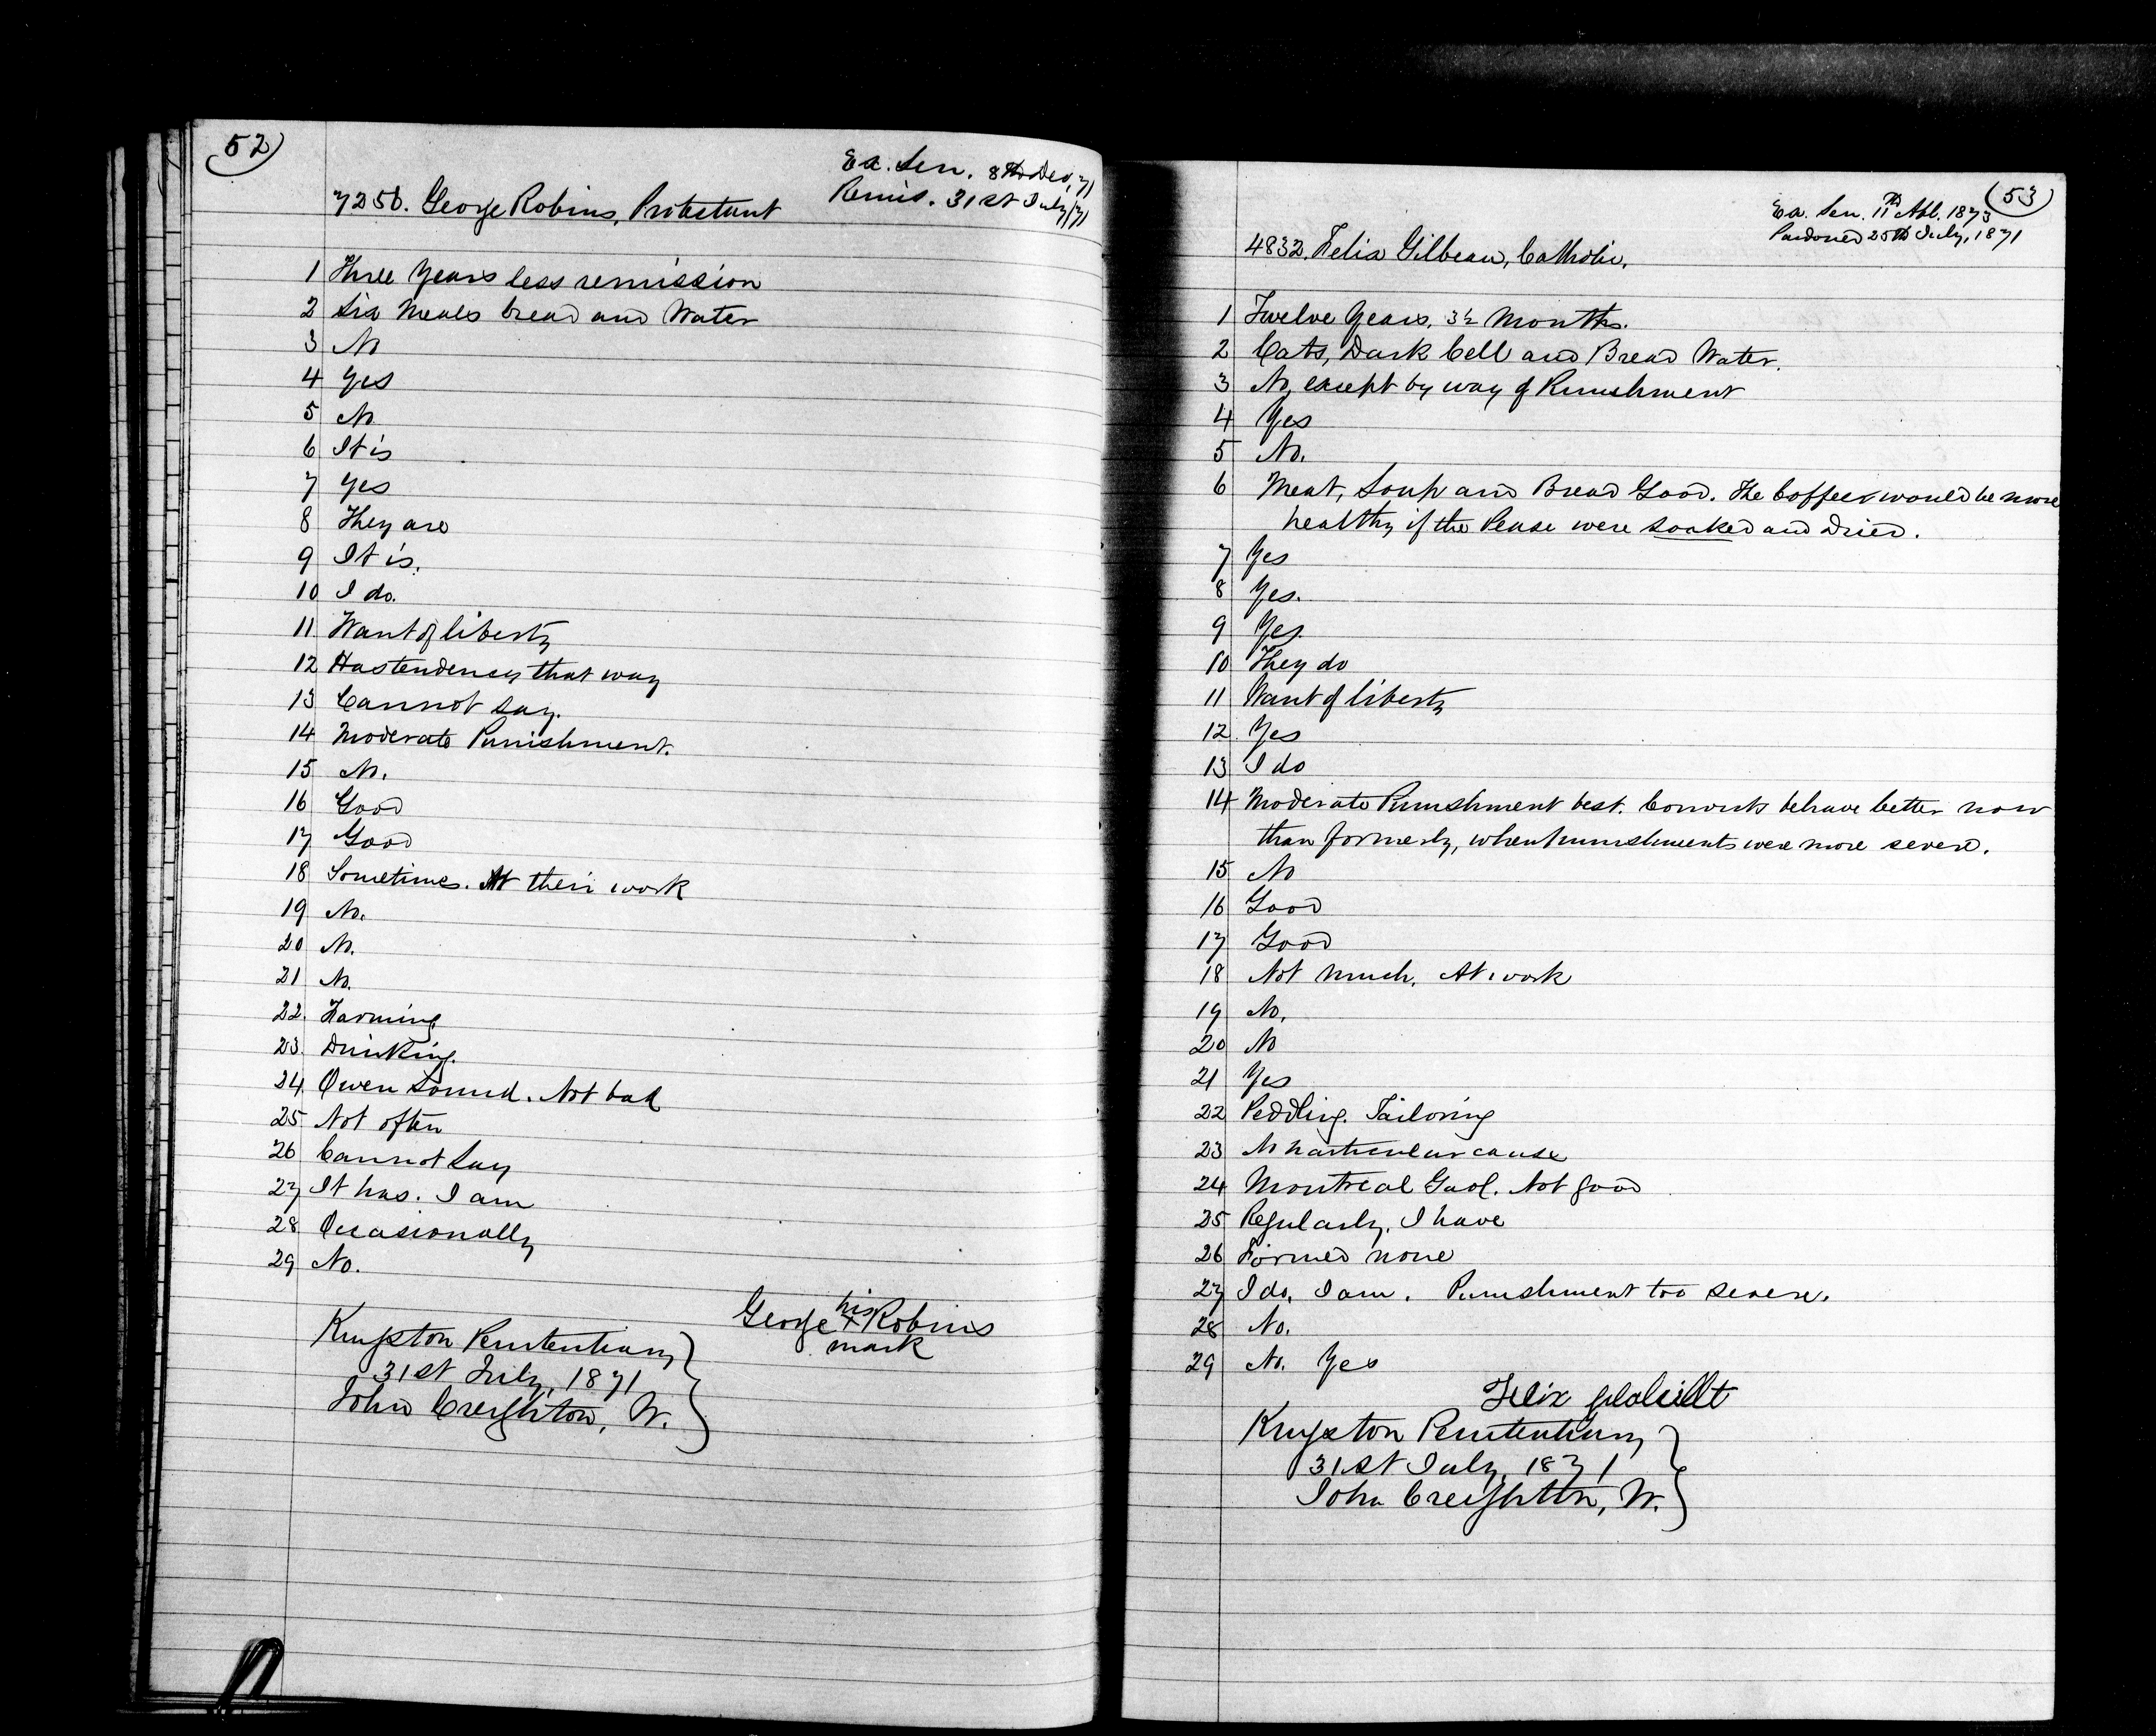 52
Ex. Sen. 8th Dec, 71
Remis. 31st July, 71
7256. George Robins, Protestant
1 Three Years less remission
2 Six Meals bread and Water
3 No
4 Yes
5 No
6 It is
7 Yes
8 They are
9 It is.
10 I do.
11 Want of liberty
12 Has tendency that way
13 Cannot say.
14 Moderate Punishment.
15 No.
16 Good
17 Good
18 Sometimes. At their work
19 No.
20 No.
21 No.
22. Farming
23. Drinking.
24. Owen Sound. Not bad
25 Not often
26 Cannot Say
27 It has. I am
28 Occasionally
29 No.
George his x mark Robins
Kingston Penitentiary
31st July, 1871
John Creighton, W.
53
Ex. Sen. 11th 1873
Pardoned 25th July, 1871
4832. Felix Gilbeau, Catholic.
1 Twelve Years. 3½ Months.
2 Cats, Dark Cell and Bread Water.
3 No, except by way of Punishment
4 Yes
5 No.
6 Meat, Soup and Bread Good. The Coffee would be more
healthy if the Pease were soaked and dried.
7 Yes
8 Yes.
9 Yes.
10 They do
11 Want of liberty
12. Yes
13 I do
14 Moderate Punishment best. Convicts behave better now
than formerly, when punishments were more severe.
15 No
16 Good
17 Good
18 Not much. At work
19 No.
20 No
21 Yes
22 Peddling. Tailoring
23 No particular cause
24 Montreal Gaol. Not good
25 Regularly. I have
26 Formed none
27 I do. I am. Punishment too severe.
28 No.
29 No. Yes
Felix
Kingston Penitentiary
31st July, 1871
John Creighton, W.